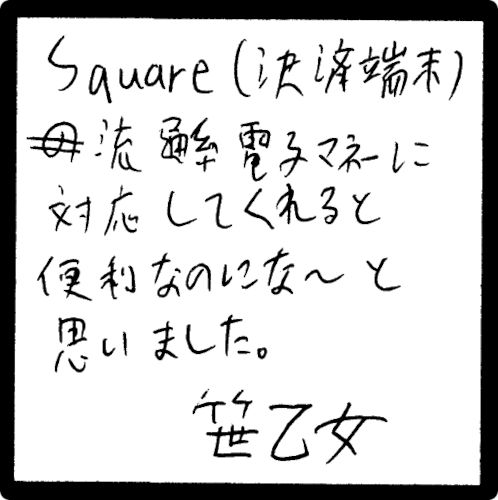 Square(決済端末)
流通系電子マネーに
対応してくれると
便利なのにな〜と
思いました。
笹乙女